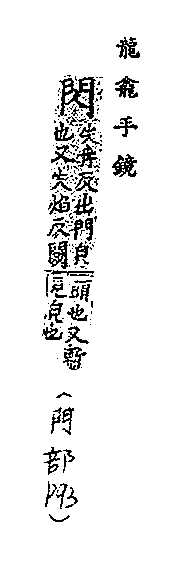 龍龕手鏡
閃
失冉反出門皃
也又失焰反闚
頭也又暫
見皃也
（門部P93）